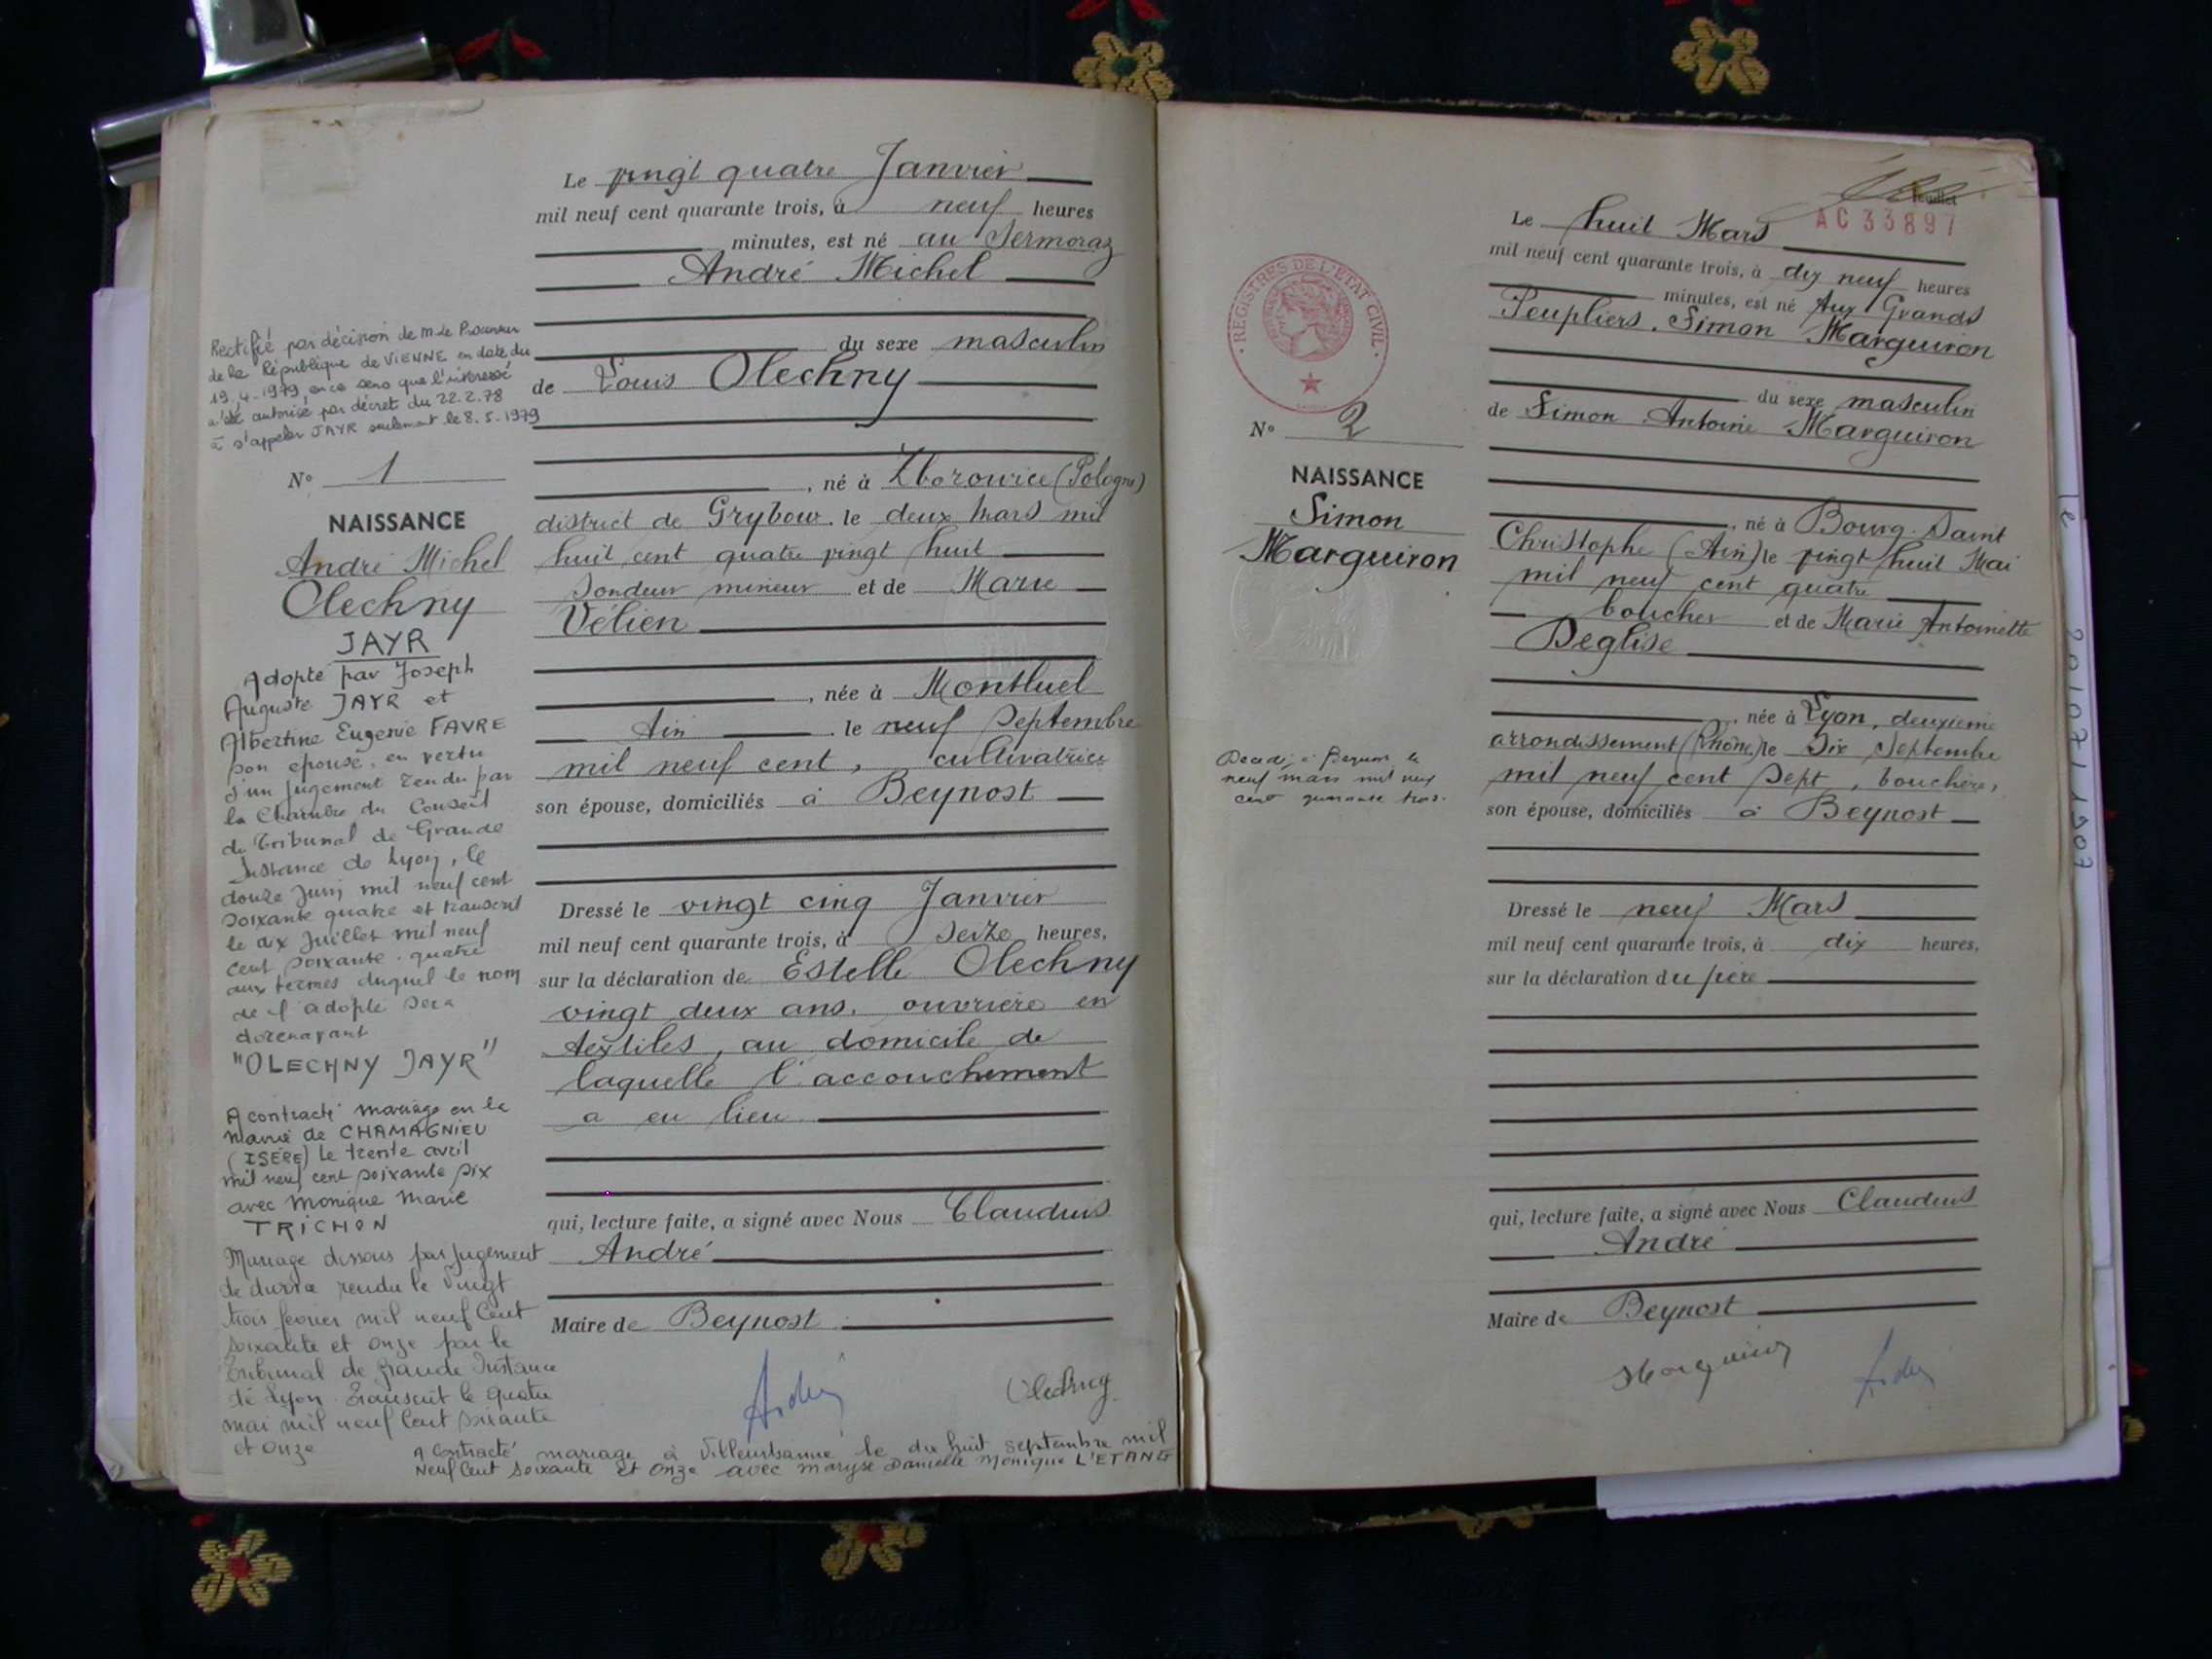 Rectifié par décision de M. le Procureur
de la République de VIENNE en date du
19.4.1979, en ce sens que l'intéressé
a été autorisé par décret du 22.2.78
à s'appeler JAYR seulement le 8.5.1979
N° 1
NAISSANCE
André Michel
Olechny
JAYR
Adopté par Joseph
Auguste JAYR et
Albertine Eugenie FAVRE
son epouse, en vertu
d'un jugement rendu par
la Chambre du Conseil
du Tribunal de Grande
Instance de Lyon, le
douze Juin mil neuf cent
soixante quatre et transcrit
le dix Juillet mil neuf
cent soixante-quatre
aux termes duquel le nom
de l'adopté sera
dorenavant
"OLECHNY JAYR"
A contracté mariage en la
mairie de CHAMAGNIEU
(ISERE) le trente avril
mil neuf cent soixante six
avec Monique Marie
TRICHON
Mariage dissous par jugement
de divorce rendu le Vingt
trois février mil neuf Cent
soixante et onze par le
Tribunal de Grande Instance
de Lyon. Transcrit le quatre
mai mil neuf Cent soixante
et onze
Le vingt quatre Janvier
mil neuf cent quarante trois, à neuf heures
minutes, est né au Sermoraz
André Michel
du sexe masculin
de Louis Olechny
, né à Zborowice (Pologne)
district de Grybow. le deux Mars mil
huit cent quatre vingt huit
Sondeur mineur et de Marie
Vélien
, née à Montluel
Ain . le neuf Septembre
mil neuf cent, cultivatrice
son épouse, domiciliés à Beynost
Dressé le vingt cinq Janvier
mil neuf cent quarante trois, à seize heures,
sur la déclaration de Estelle Olechny
vingt deux ans, ouvrière en
textiles, au domicile de
laquelle l'accouchement
a eu lieu
qui, lecture faite, a signé avec Nous Claudius
André
Maire de Beynost
André Olechny
A Contracté mariage à Villeurbanne le dix huit septembre mil
Neuf Cent Soixante et Onze avec Maryse Danielle Monique L'ETANG
Feuillet
AC 33897
REGISTRES DE L'ETAT CIVIL
N° 2
NAISSANCE
Simon
Marguiron
Décédé à Beynost le
neuf mars mil neuf
cent quarante trois.
Le huit Mars
mil neuf cent quarante trois, à dix neuf heures
minutes, est né Aux Grands
Peupliers. Simon Marguiron
du sexe masculin
de Simon Antoine Marguiron
, né à Bourg-Saint
Christophe (Ain) le vingt huit Mai
mil neuf cent quatre
boucher et de Marie Antoinette
Deglise
, née à Lyon, deuxième
arrondissement (Rhône) le Six Septembre
mil neuf cent sept, bouchère,
son épouse, domiciliés à Beynost
Dressé le neuf Mars
mil neuf cent quarante trois, à dix heures,
sur la déclaration du père
qui, lecture faite, a signé avec Nous Claudius
André
Maire de Beynost
Marguiron André